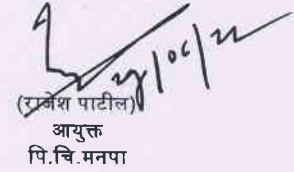 (राजेश पाटील)
आयुक्त
पि.चि.मनपा